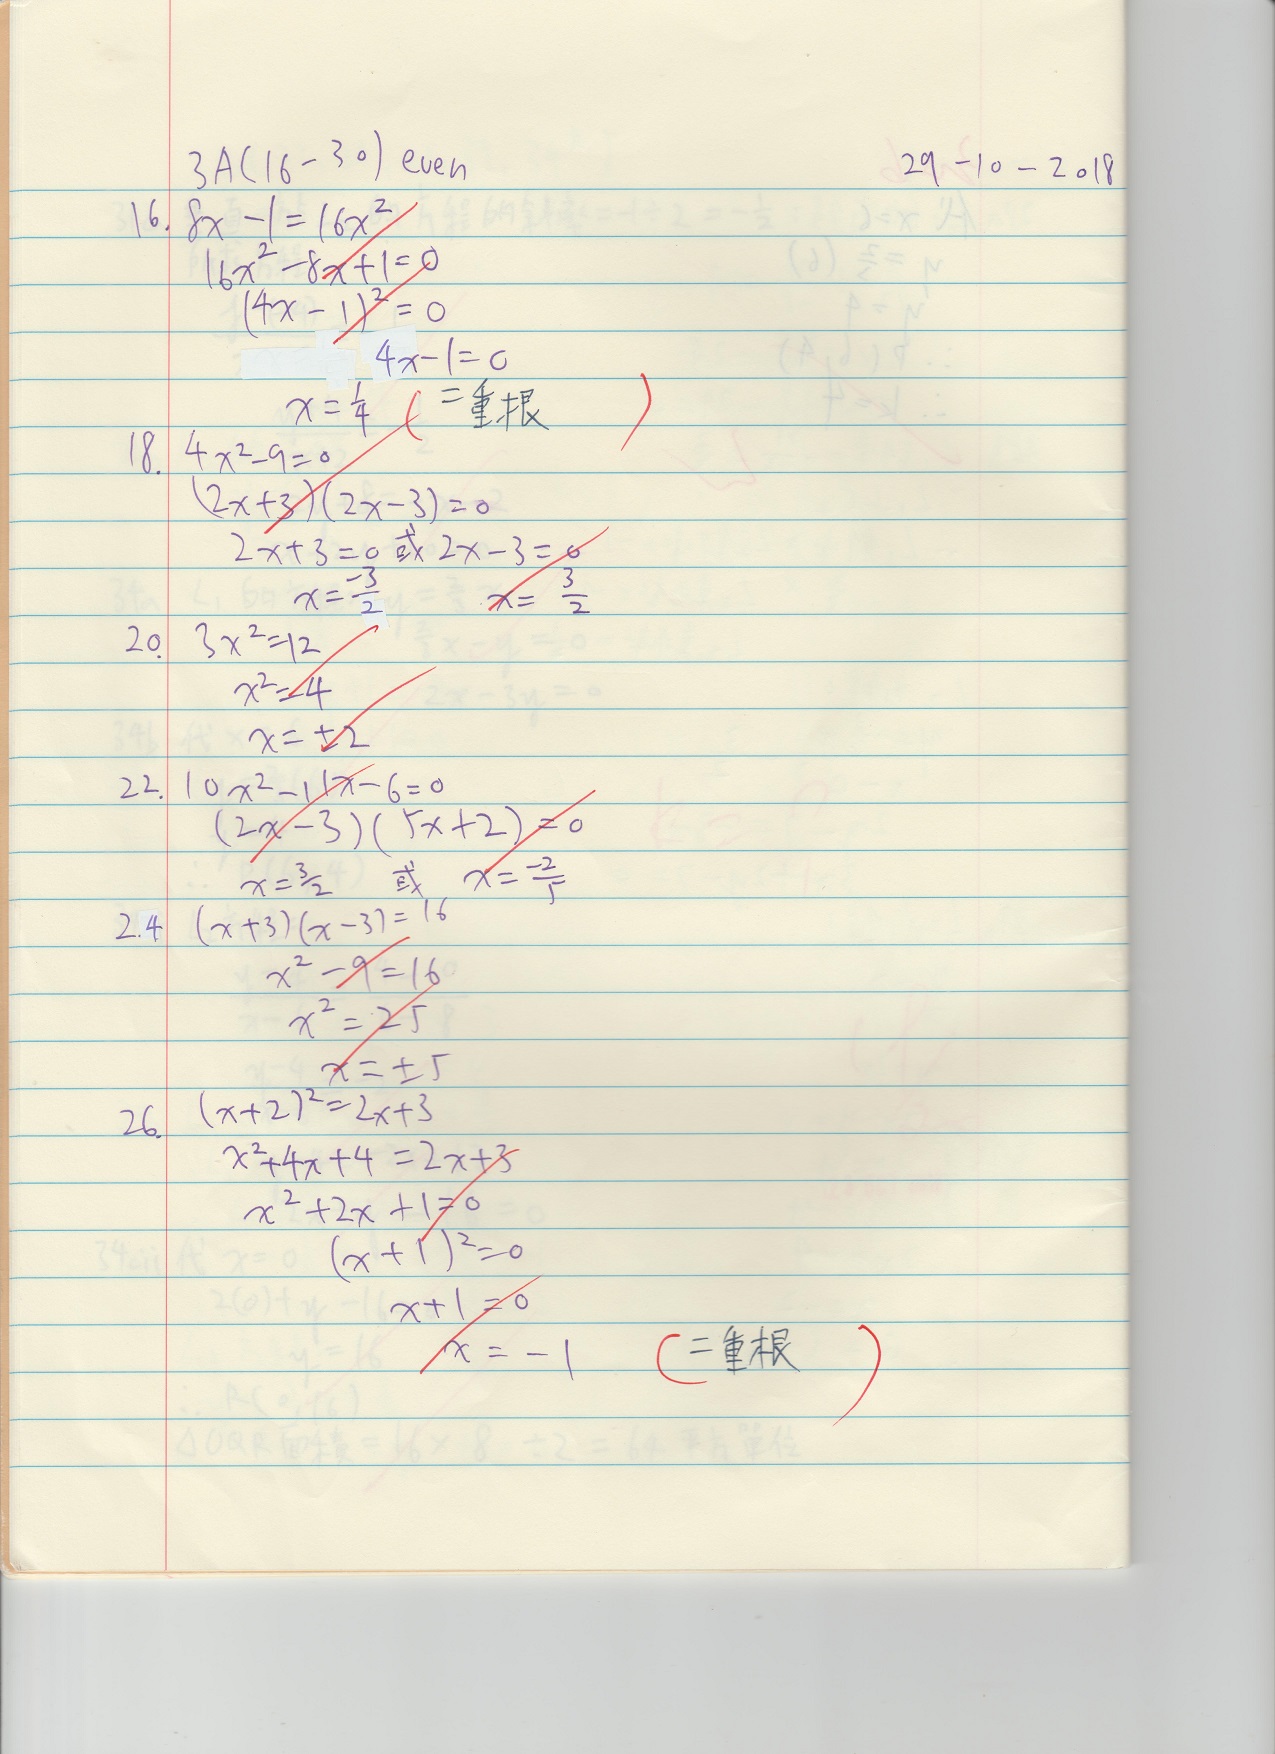 3A(16-30) even 29-10-2018
16. 8x-1=16x²
16x²-8x+1=0
(4x-1)²=0
4x-1=0
x=1/4 (二重根)
18. 4x²-9=0
(2x+3)(2x-3)=0
2x+3=0 或 2x-3=0
x=-3/2 x=3/2
20. 3x²=12
x²=4
x=±2
22. 10x²-11x-6=0
(2x-3)(5x+2)=0
x=3/2 或 x=-2/5
24 (x+3)(x-3)=16
x²-9=16
x²=25
x=±5
26. (x+2)²=2x+3
x²+4x+4=2x+3
x²+2x+1=0
(x+1)²=0
x+1=0
x=-1 (二重根)